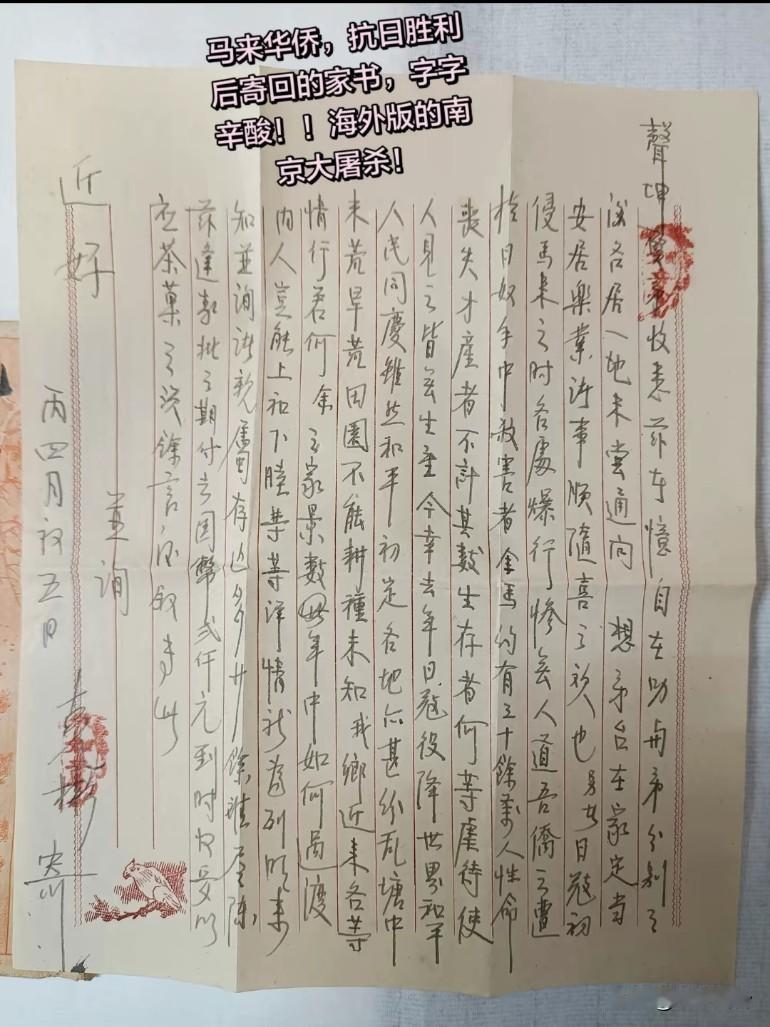 马来华侨，抗日胜利
后寄回的家书，字字
辛酸！！海外版的南
京大屠杀！
聲坤賢弟收悉茲者憶自在叻与弟分别之
後各居一地未尝通问 想弟台在家定当
安居樂業诸事順隨喜之欣也 另者日寇初
侵馬来之时各處爆行惨無人道吾僑之遭
於日奴手中被害者全馬约有三十餘萬人性命
喪失才產者不計其数生存者何等虐待使
人見之皆無生至今幸去年日寇投降世界和平
人民同慶雖然和平初定各地亦甚纷乱塘中
来荒旱荒田園不能耕種未知我鄉近来各等
情行若何余之家景数年中如何過渡
内人豈能上和下睦等等详情祈為列明来
知並询诸親屬存
茲逢敦批之期付去国幣貳仟元到时收妥以
应茶菓之资餘言后叙专此
並询
近好
丙四月初五日